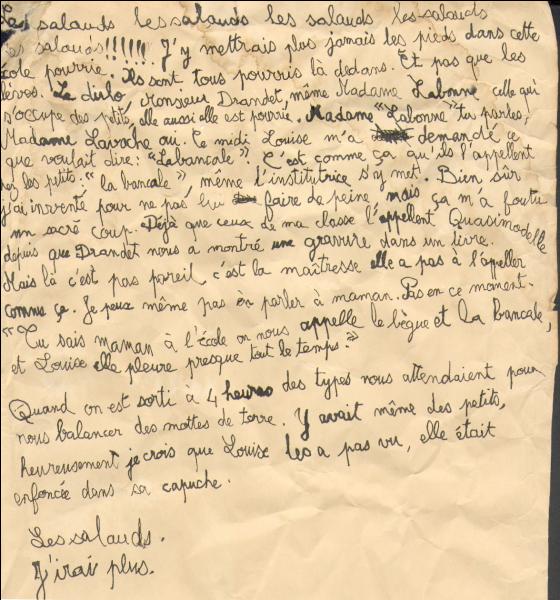 Les salauds les salauds les salauds les salauds
les salauds!!!!!! J'y mettrais plus jamais les pieds dans cette
école pourrie. Ils sont tous pourris là dedans. Et pas que les
élèves. Le dirlo, Monsieur Drandet, même Madame Labonne celle qui
s'occupe des petits, elle aussi elle est pourrie. Madame "Labonne" tu parles,
Madame Lavache oui. Ce midi Louise m'a demandé ce
que voulait dire: "Labancale". C'est comme ça qu'ils l'appellent
chez les petits: "la bancale", même l'institutrice s'y met. Bien sûr
j'ai inventé pour ne pas lui faire de peine, mais ça m'a foutu
un sacré coup. Déjà que ceux de ma classe l'appellent Quasimodelle
depuis que Drandet nous a montré une gravure dans un livre.
Mais là c'est pas pareil, c'est la maîtresse elle a pas à l'appeler
comme ça. Je peux même pas en parler à maman. Pas en ce moment.
"Tu sais maman à l'école on nous appelle le bègue et la bancale,
et Louise elle pleure presque tout le temps."
Quand on est sorti à 4 heures des types nous attendaient pour
nous balancer des mottes de terre. Y avait même des petits,
heureusement je crois que Louise les a pas vu, elle était
enfoncée dans sa capuche.
Les salauds.
J'irai plus.